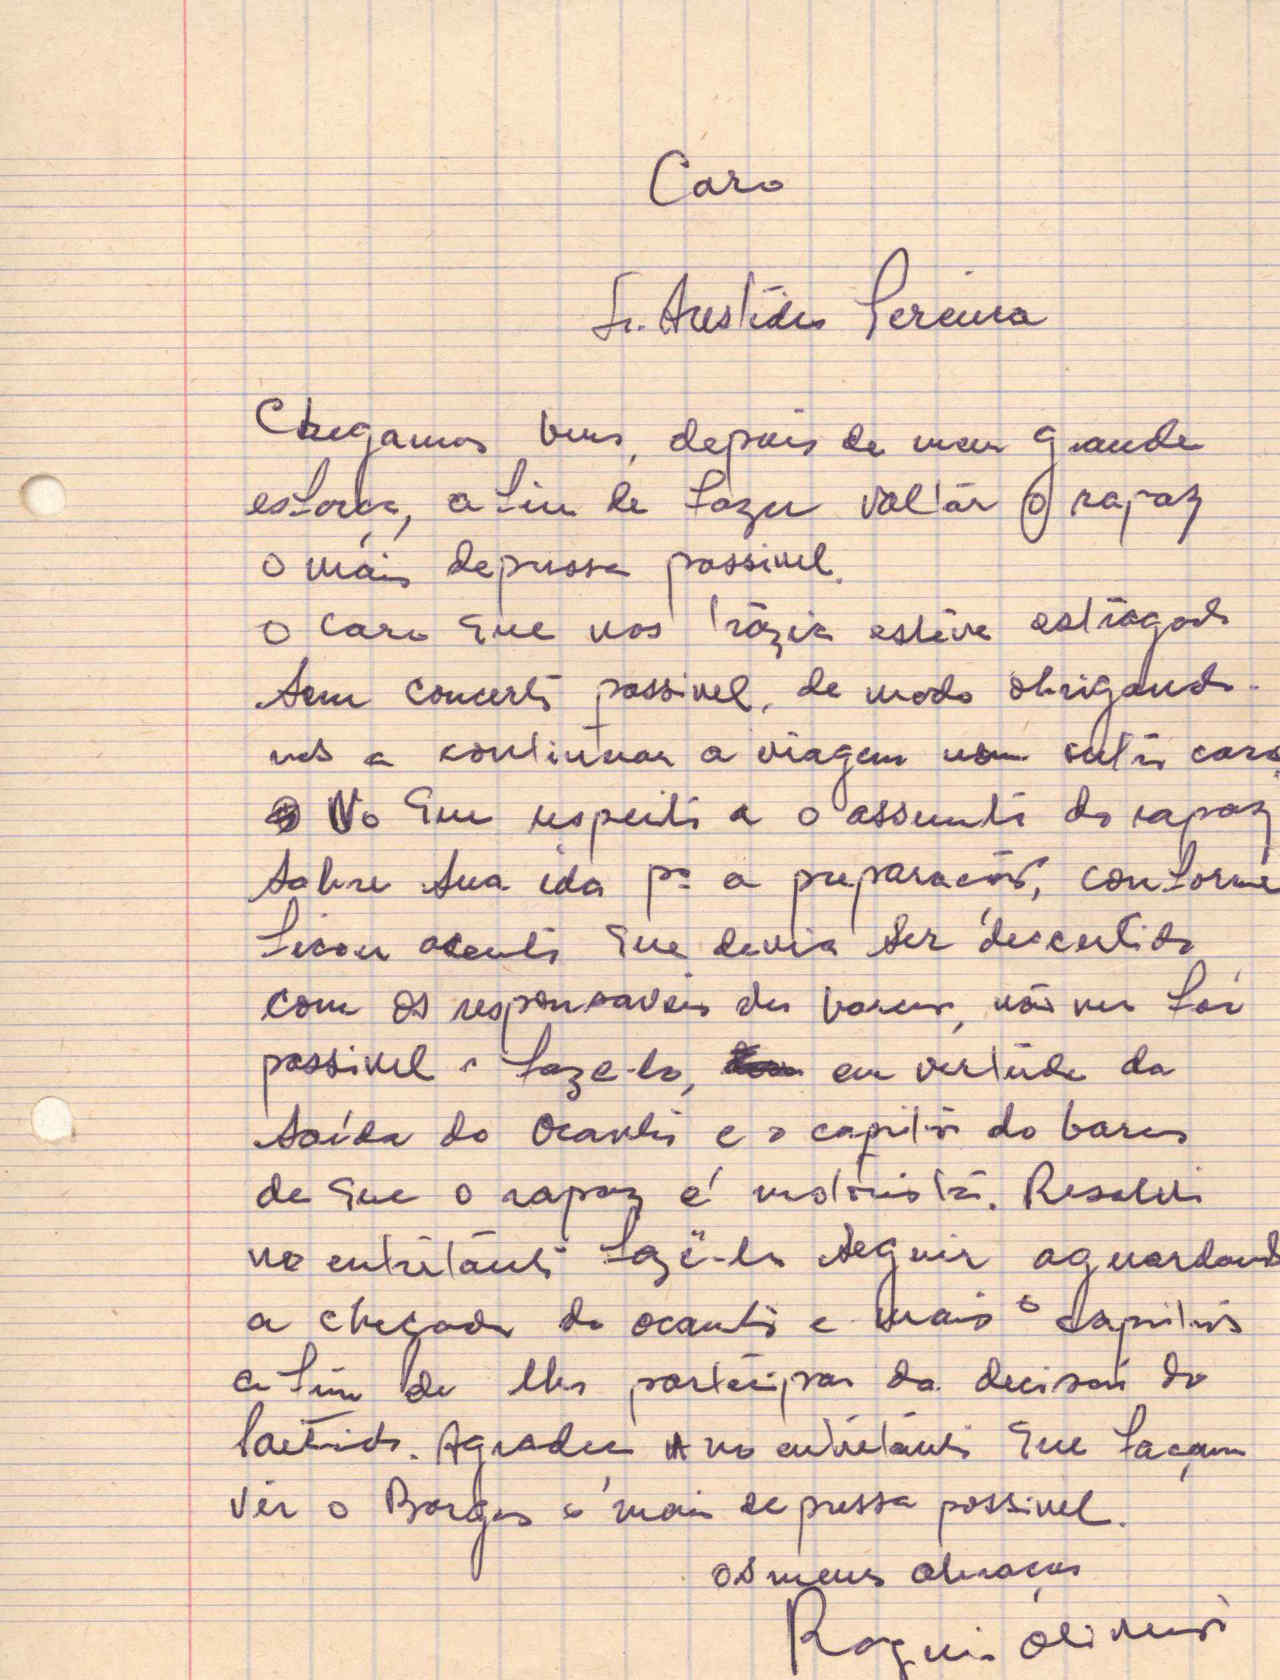 Caro
Sr. Arestides Pereira
Chegamos bem, depois de meu grande
esforço, a fim de fazer voltár o rapaz
o máis depressa possivel.
O caro que nos trázia estêve estrágado
sem concerto possivel, de modo obrigando-
nos a continuar a viagem num outro caro.
No que respeito a o assunto do rapaz
sobre sua ida pª a preparação, conforme
ficou assente que devia ser descutido
com os responsaveis dos barcos, não me foi
possivel fazê-lo, em vertude da
saída do Ocanto e o capitão do barco
de que o rapaz é motorista. Resolvi
no entretanto fazê-lo seguir aguardando
a chegada do ocanto e mais o capitão
a fim de lhes participar da decisão do
Partido. Agradeço no entretanto que façam
vêr o Borges o mais depressa possivel.
os meus abraços
Oliveira